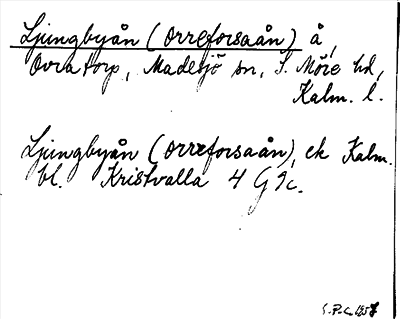 Ljungbyån (Orreforsaån) å,
Ovratorp, Madesjö sn, S. Möre hd,
Kalm. l.
Ljungbyån (Orreforsaån), ek Kalm.
bl. Kristvalla 4 G 9c.
S.P.C. 1957